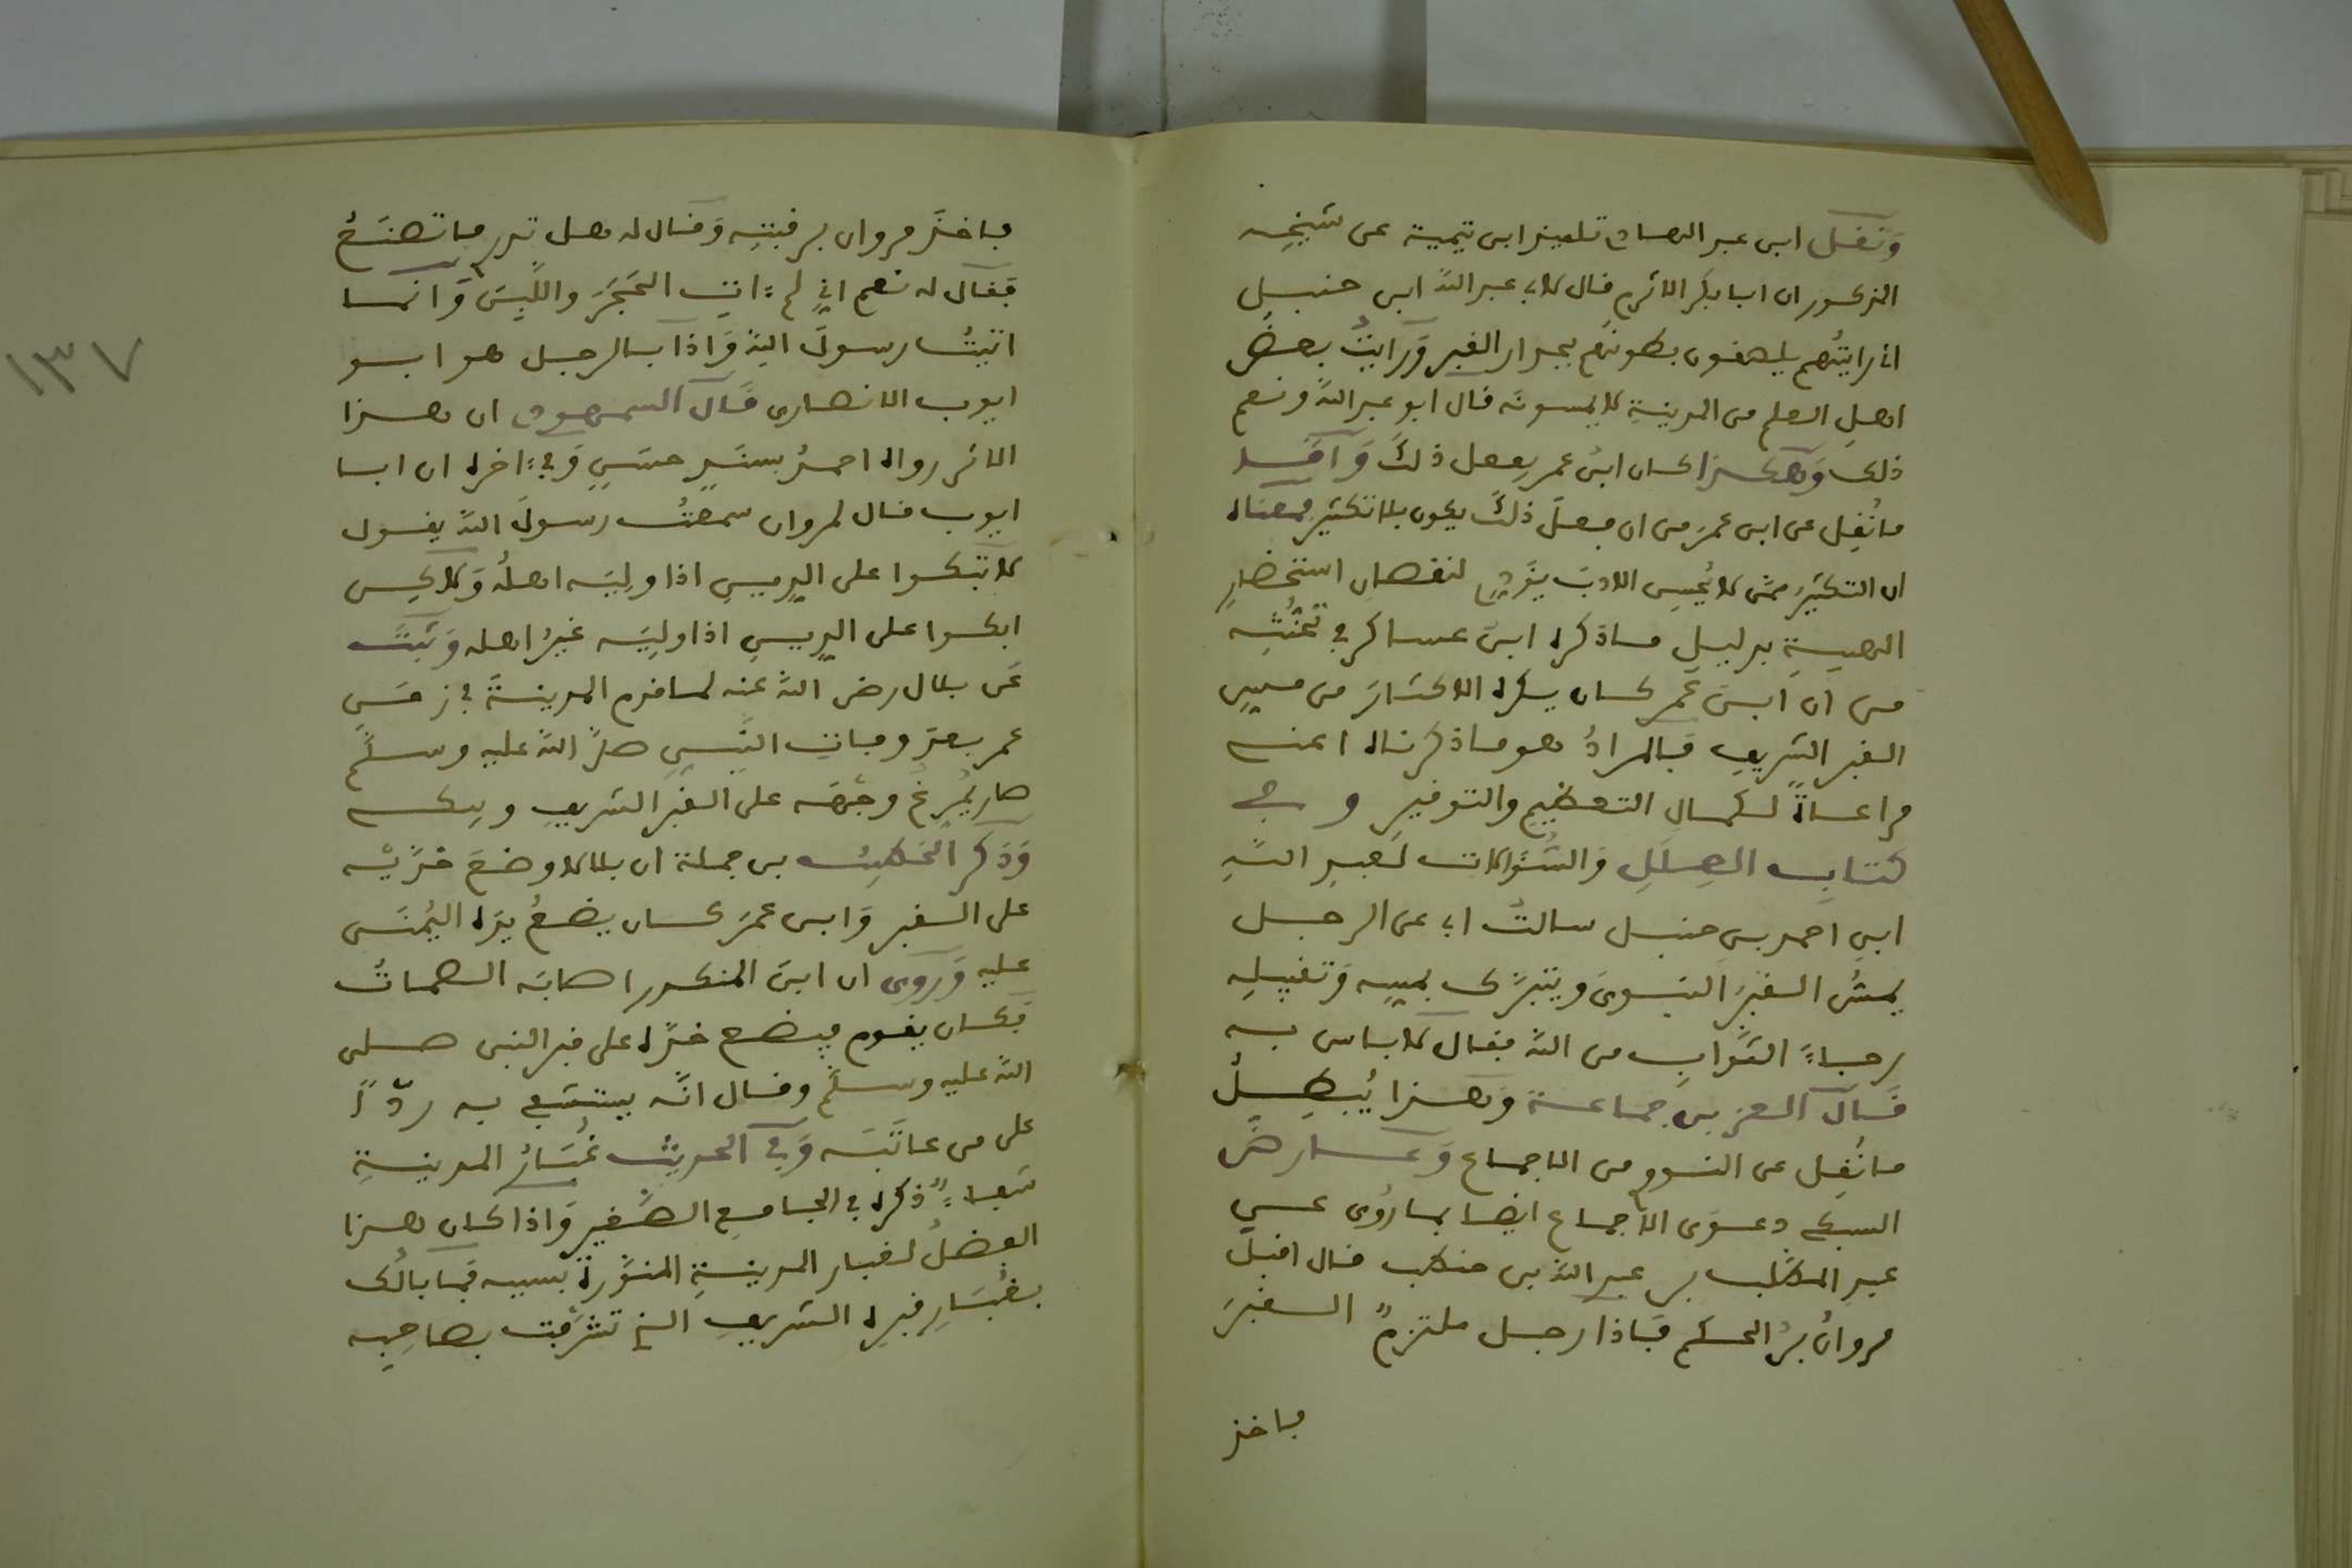 ونقل ابن عبد الهادي تلميذ ابن تيمية عن شيخه
المذكور ان ابا بكر الاثرم قال لابي عبد الله ابن حنبل
اني رايتهم يلصقون بطونهم بجدار القبر ورايت بعض
اهل العلم من المدينة لا يمسونه قال ابو عبد الله ونعم
ذلك وهكذا كان ابن عمر يفعل ذلك واقل
ما نقل عن ابن عمر من ان فعل ذلك يكون بلا تكثير فمعناه
ان التكثير ممن لا يحسن الادب يؤدي لنقصان استحضار
الهيبة بدليل ما ذكره ابن عساكر في تحفته
من ان ابن عمر كان يكره الاكثار من مسيس
القبر الشريف فالمراد هو ما ذكرناه اعنى
مراعاة لكمال التعظيم والتوقير وفي
كتاب العلل والسؤالات لعبد الله
ابن احمد بن حنبل سالت ابي عن الرجل
يمس القبر النبوى ويتبرك بمسه وتقبيله
رجاء الثواب من الله فقال لا باس به
قال العز بن جماعة وهذا يبطل
ما نقل عن النووي من الاجماع وعارض
السبكي دعوى الاجماع ايضا بما روى عن
عبد المطلب بن عبد الله بن حنطب قال اقبل
مروان بن الحكم فاذا رجل ملتزم القبر
فاخذ
فاخذ مروان برقبته وقال له هل تدرى ما تصنع
فقال له نعم اني لم اات الحجر واللبن وانما
اتيت رسول الله واذا بالرجل هو ابو
ايوب الانصارى قال السمهودي ان هذا
الاثر رواه احمد بسند حسن وفي اخره ان ابا
ايوب قال لمروان سمعت رسول الله يقول
لا تبكوا على الدين اذا وليه اهله ولاكن
ابكوا على الدين اذا وليه غير اهله وثبت
عن بلال رضى الله عنه لما قدم المدينة في زمن
عمر بعد وفات النبي صلى الله عليه وسلم
صار يمرغ وجهه على القبر الشريف ويبكى
وذكر الخطيب بن جملة ان بلالا وضع خديه
على القبر وابن عمر كان يضع يده اليمنى
عليه وروى ان ابن المنكدر اصابه الصمات
فكان يقوم فيضع خده على قبر النبى صلى
الله عليه وسلم وقال انه يستشفي به ردا
على من عاتبه وفي الحديث غبار المدينة
شفاء ذكره في الجامع الصغير واذا كان هذا
الفضل لغبار المدينة المنورة بسببه فما بالك
بغبار قبره الشريف الذي تشرفت بصاحبه
١٣٧